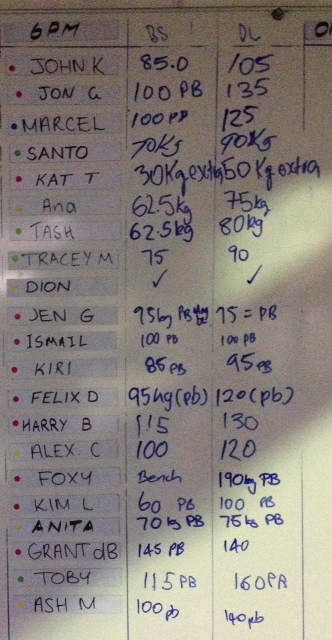 6PM BS DL
JOHN K 85.0 105
JON G 100 PB 135
MARCEL 100 PB 125
SANTO 70Kg 90Kg
KAT T 30Kg extra 50 Kg extra
Ana 62.5kg 75kg
TASH 62.5kg 80kg
TRACEY M 75 90
DION ✓ ✓
JEN G 95kg PB 75 = PB
ISMAIL 100 PB 100 PB
KIRI 85 PB 95 PB
FELIX D 95kg (pb) 120 (pb)
HARRY B 115 130
ALEX C 100 120
FOXY Bench 190kg PB
KIM L 60 PB 100 PB
ANITA 70 kg PB 75 kg PB
GRANT dB 145 PB 140
TOBY 115 PB 160 PB
ASH M 100 pb 140 pb